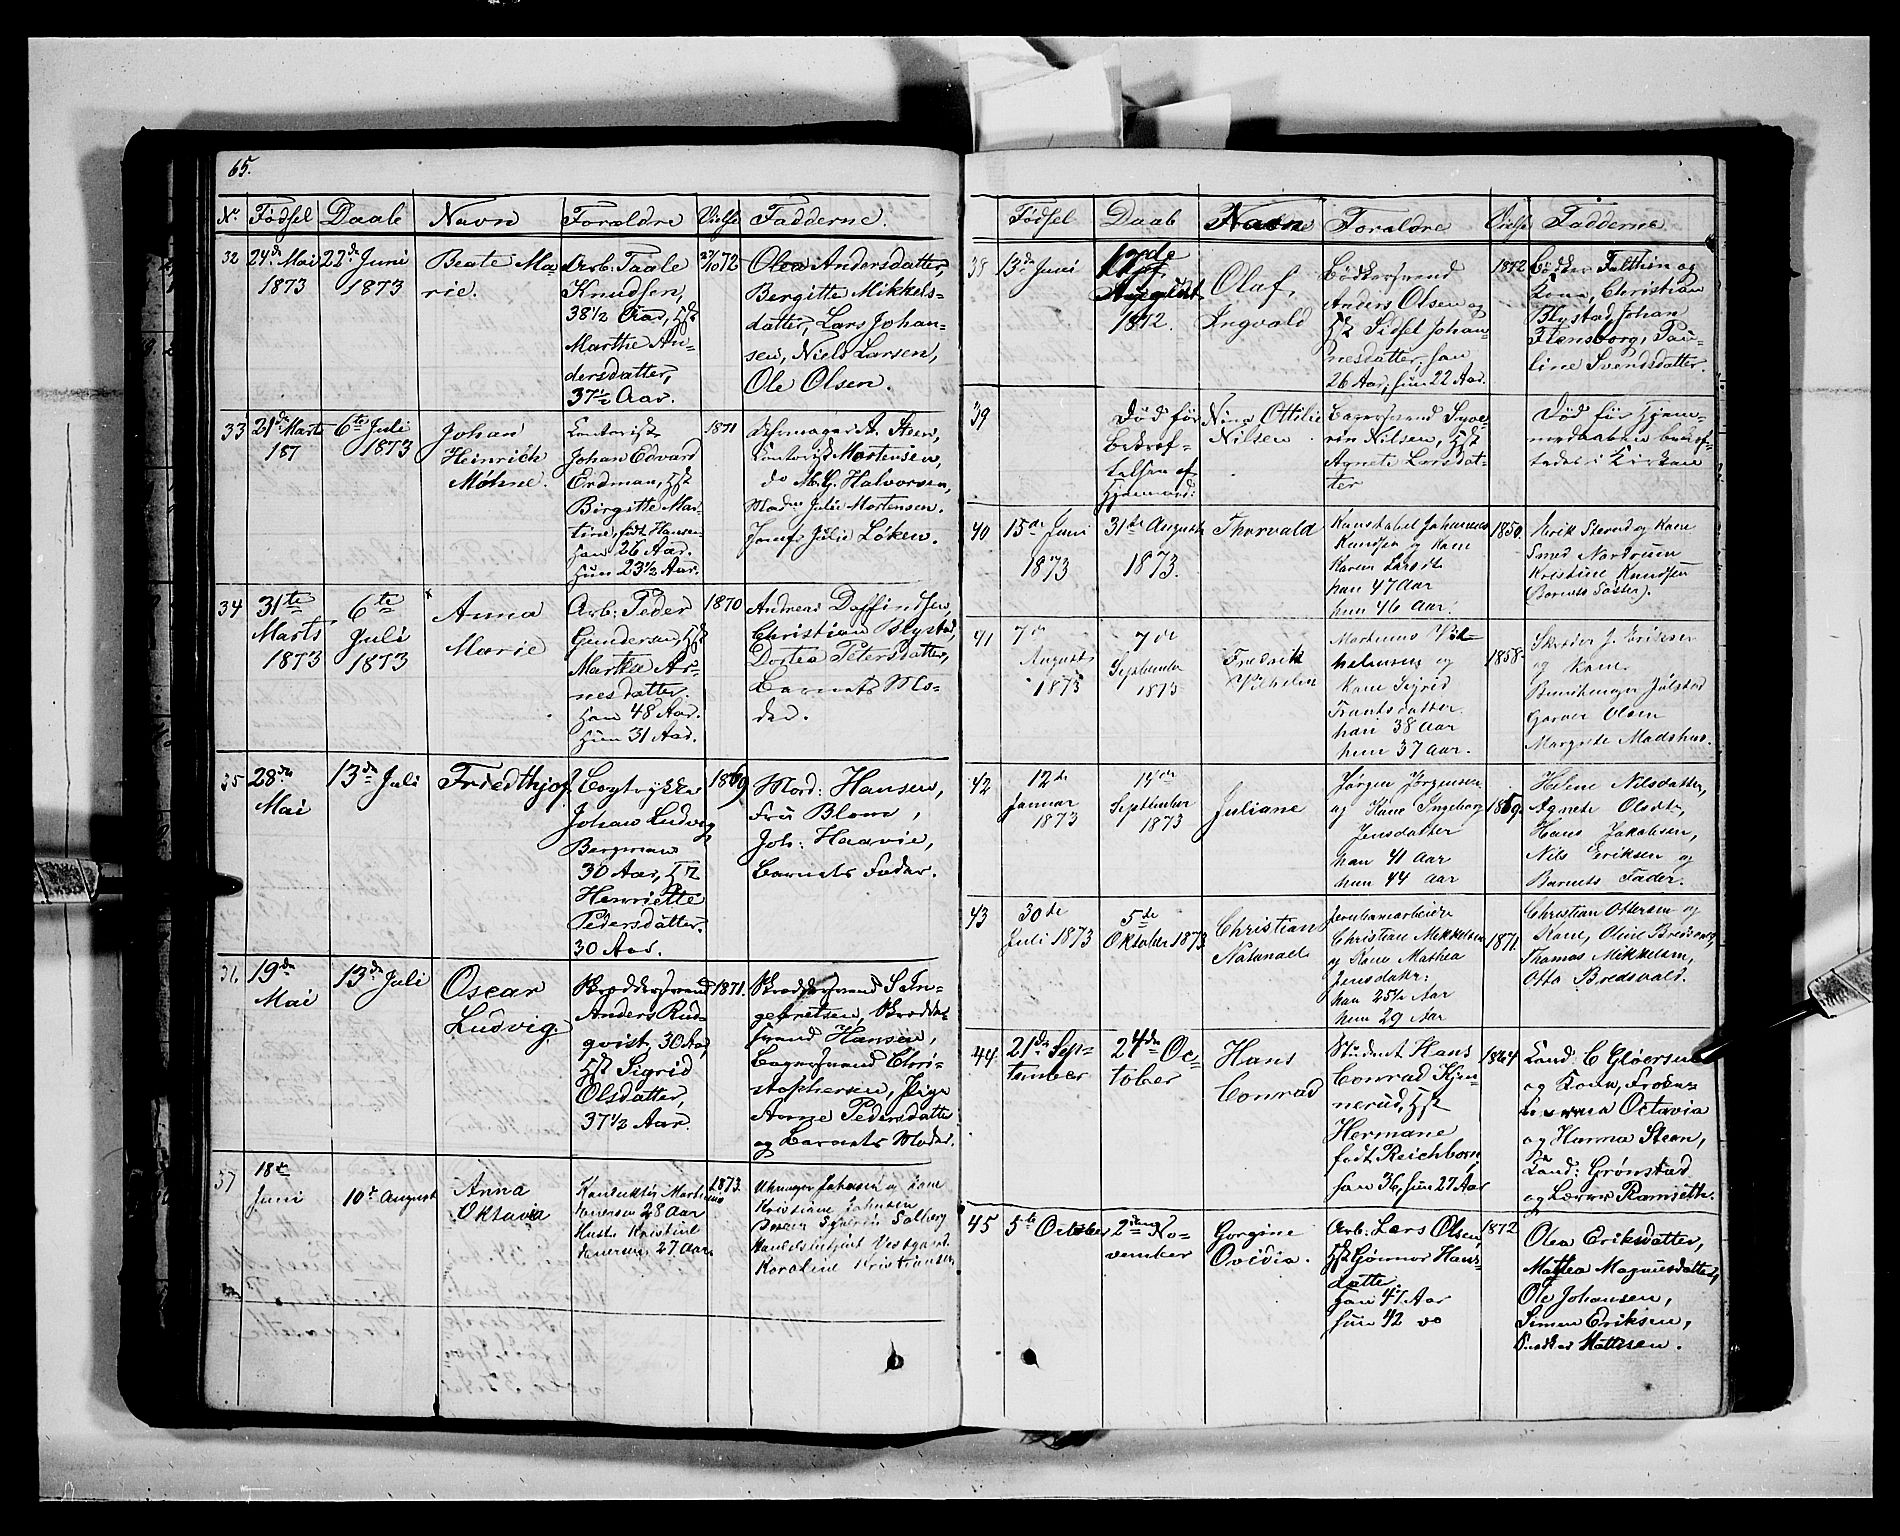 65.
No. Fødsel Daab Navn Foraldre Vielse Fadderne.
32 24de Mai 1873
22de Juni 1873
Beate Ma-
rie.
Arb: Taale
Knudsen,
38½ Aar, Hst
Marthe An-
dersdatter,
37½ Aar.
27/10 72
Olea Andersdatter,
Bergitte Mikkels-
datter, Lars Johan-
sen, Niels Larsen,
Ole Olsen.
33 21de Marts
187
6te Juli
1873
Johan
Heinrich
Møhne.
Contorist
Johan Edvard
Erdman, Hst
Birgitte Mar-
tine, født Hansen
Han 26 Aar.
Hun 23½ Aar.
1871
Contorist Mortensen,
do M. G. Halvorsen,
Mad. Julie Mortensen.
Jomfr Julie Løken.
34 31te
Marts
1873
6te
Juli
1873
Anna
Marie
Arb: Peder
Gundersen, Hst
Marthea Ar-
nesdatter.
Han 48 Aar.
Hun 31 Aar.
1870
Andreas Doffindsen,
Christian Blystad,
Dortea Petersdatter,
Barnets Mo-
der.
35 28de
Mai
13de Juli
Friedthjof
Bogtrykker
Johan Ludvig
Bergman
30 Aar, Hst
Henriette
Pedersdatter.
30 Aar.
1869
Mad: Hansen,
Fru Blom,
Joh: Haavie,
Barnets Fader.
36 19de
Mai
13de Juli
Oscar
Ludvig.
Skreddersvend
Anders Rud-
qvist, 30 Aar,
Hst Sigrid
Olsdatter,
37½ Aar.
1871.
Skreddersvend S. In-
gebretsen, Skredder-
svend Hansen,
Bagersvend Chri-
stophersen, Pige
Anne Pedersdatter
og Barnets Moder.
37 18de
Juni
10de August
Anna
Oktavia
Konduktør Martinus
Iversen 28 Aar
Hustr Kristine
Iversen 27 Aar.
1873.
Uhrmager Johnsen og Kone
Kristiane Johnsen
Solberg
Handelsbetjent Vestgaard
Karoline Kristiansen
Fødsel Daab Navn Foraldre Vielse Fadderne
38 13de Juni
12de
August
1872.
Olaf,
Ingvald
Bødkersvend
Anders Olsen og
Hst Sidsel Johan-
nesdatter, han
26 Aar, hun 22 Aar.
1872
Bødker Falthin og
Kone, Christian
Blystad, Johan
Flensborg, Pau-
line Svendsdatter.
39
Død før
bekræf-
telsen af
Hjemmed:
Nina Ottilie
Nilsen.
Bagersvend Seve-
rin Nilsen, Hst
Agnete Larsdat-
ter
Død før Hjem-
medaaben bekræf-
tedes i Kirken
40 15de Juni
1873
31te August
1873.
Thorvald
Konstabel Johannes
Knudsen og Kone
Karen Larsdt
han 47 Aar
hun 46 Aar.
1850.
Erik Stensrud og Kone
Smed Nordrum
Kristine Knudsen
(Barnets Søster).
41 7de
August
1873
7de
September
1873
Fredrik
Vilhelm
Martinus Vil-
helmsen og
Kone Sigrid
Frantsdatter
han 38 Aar
hun 37 Aar.
1858
Skræder J. Eriksen
og Kone.
Buntmager Jølstad
Garver Olsen
Margrete Madshus.
42 12te
Januar
1873
14de
September
1873
Juliane
Jørgen Jørgensen
og Kone Ingeborg
Jensdatter
han 41 Aar
hun 44 Aar
1869.
Helene Nilsdatter,
Agnete Olsdt,
Hans Jakobsen,
Nils Eriksen og
Barnets Fader.
43 30te
Juli 1873
5te
Oktober 1873
Christian
Natanael
Jernbanearbeider
Christian Mikkelsen
og Kone Mathea
Jensdatr:
han 25½ Aar
hun 29 Aar
1871.
Christian Ottersen og
Kone, Oline Bredsvold,
Thomas Mikkelsen,
Otto Bredsvold.
44. 21de Sep-
tember
24de Oc-
tober
Hans
Conrad
Student Hans
Conrad Kjen-
nerud, Hst
Hermane
født Reichborn,
han 36, hun 27 Aar
1864
Cand: C Gløersen
og Kone, Frøkne-
Octavia
og Hanna Steen,
Cand: Grønstad
og Lærer Ramseth.
45 5te October
2den No-
vember
Gorgine
Ovidia.
Arb: Lars Olsen,
Hst Gunnor Hans-
datter
Han 47 Aar
hun 42 do
1872
Olea Eriksdatter,
Mathea Magnusdatter,
Ole Johansen,
Simen Eriksen,
Mattisen.